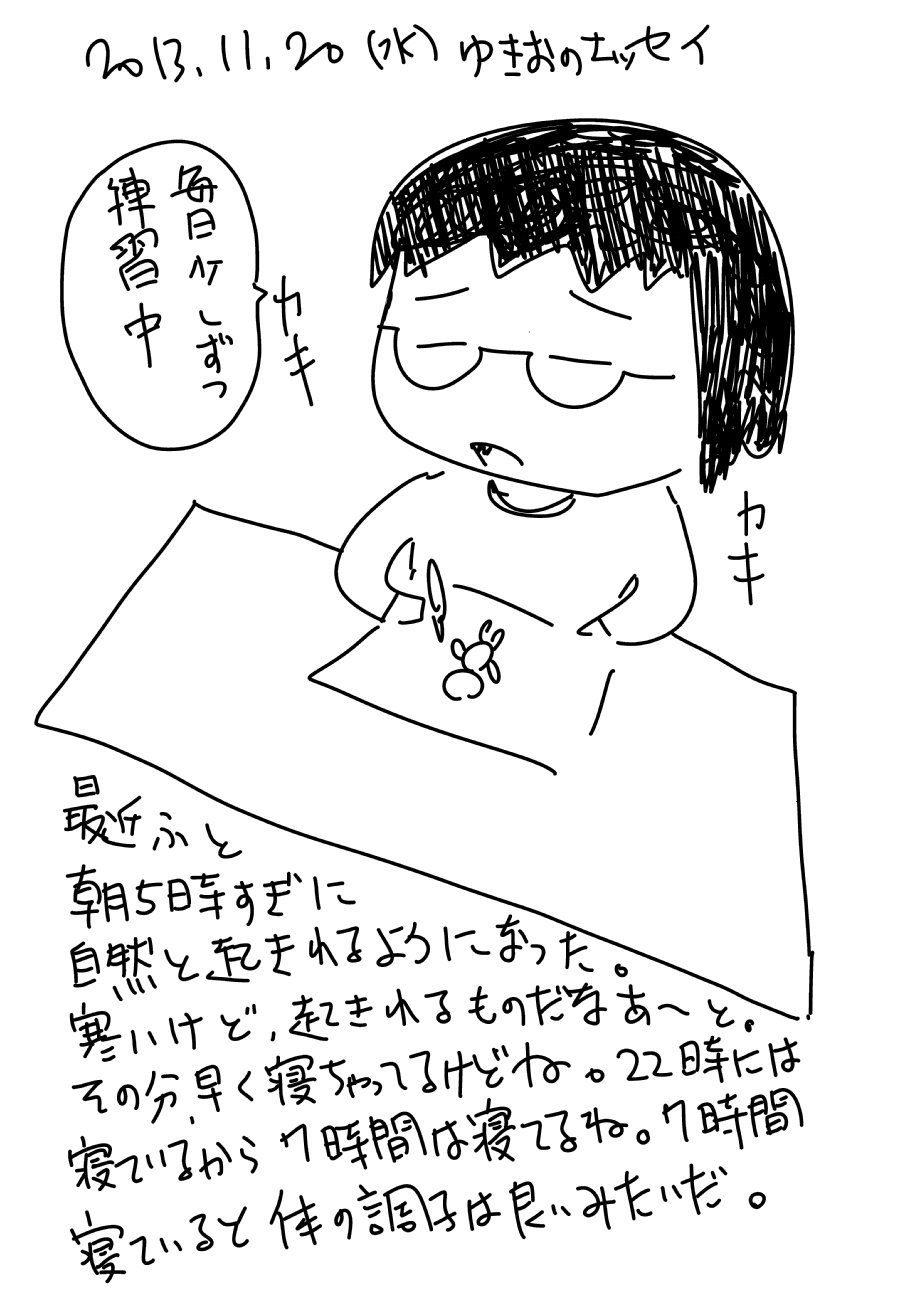 2013.11.20(水)ゆきおのムッセイ
毎日少しずつ
練習中
カキ
カキ
最近ふと
朝5時すぎに
自然と起きれるようになった。
寒いけど、起きれるものだなあ〜と。
その分、早く寝ちゃってるけどね。22時には
寝ているから7時間は寝てるね。7時間
寝ていると体の調子は良いみたいだ。